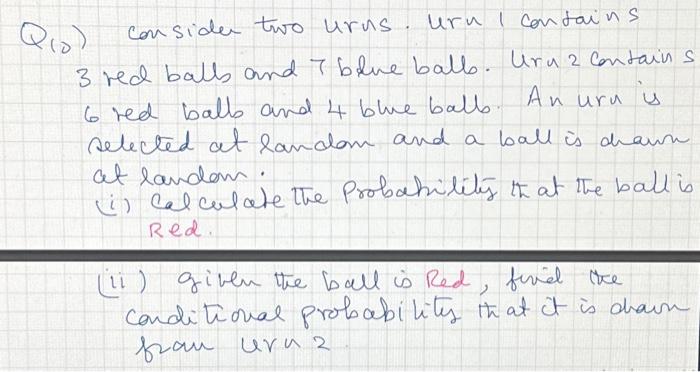 Q(2) consider two urns. Urn 1 contains
3 red balls and 7 blue balls. Urn 2 contains
6 red balls and 4 blue balls. An urn is
selected at random and a ball is drawn
at random.
(i) Calculate the Probability that the ball is
Red.
(ii) given the ball is Red, find the
conditional probability that it is drawn
from urn 2